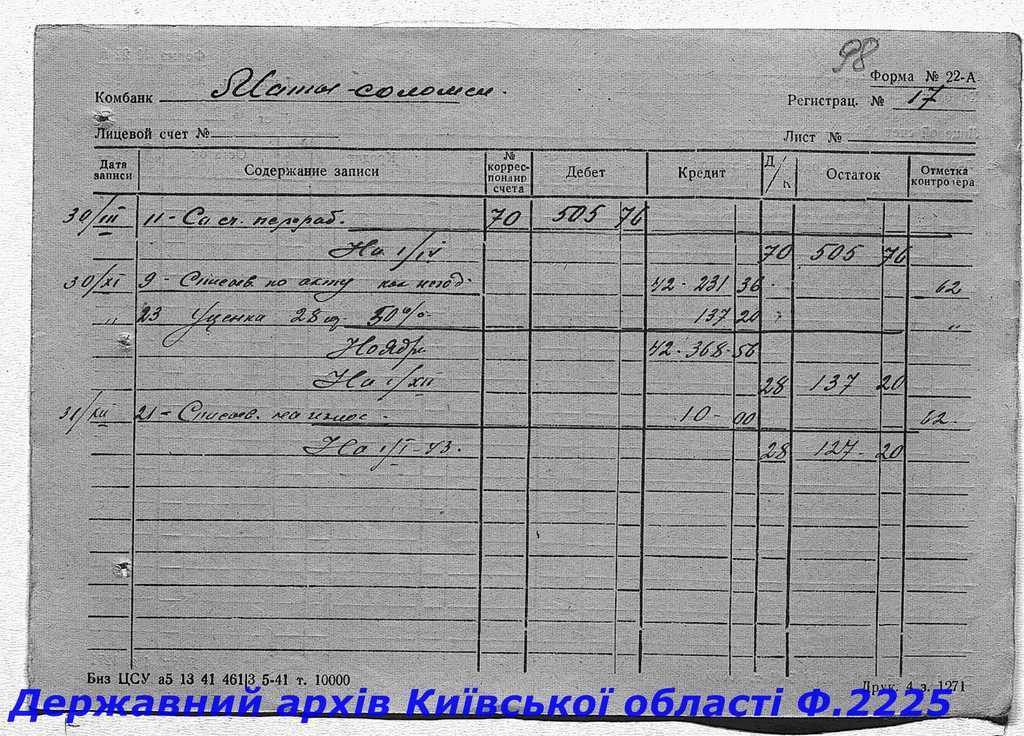 98
Форма № 22-А
Комбанк Маты-соломен.
Регистрац. № 17
Лицевой счет №
Лист №
Дата записи Содержание записи № коррес-понаир счета Дебет Кредит Д/К Остаток Отметка контролера
30/III 11 - Со сч. перераб. 70 505 76
На 1/IV 70 505 76
30/XI 9 - Списыв. по акту как негод. 42 - 231 36 62
" 23 Уценка 28 шт. 50% 137 20 "
Ноябрь 42 - 368 - 56
На 1/XII 28 137 20
31/XII 21 - Списыв. на износ - 10 - 00 62
На 1/I - 43. 28 127 - 20
Биз ЦСУ а5 13 41 461|3 5-41 т. 10000
Друк. 4 з. 1271
Державний архів Київської області Ф.2225